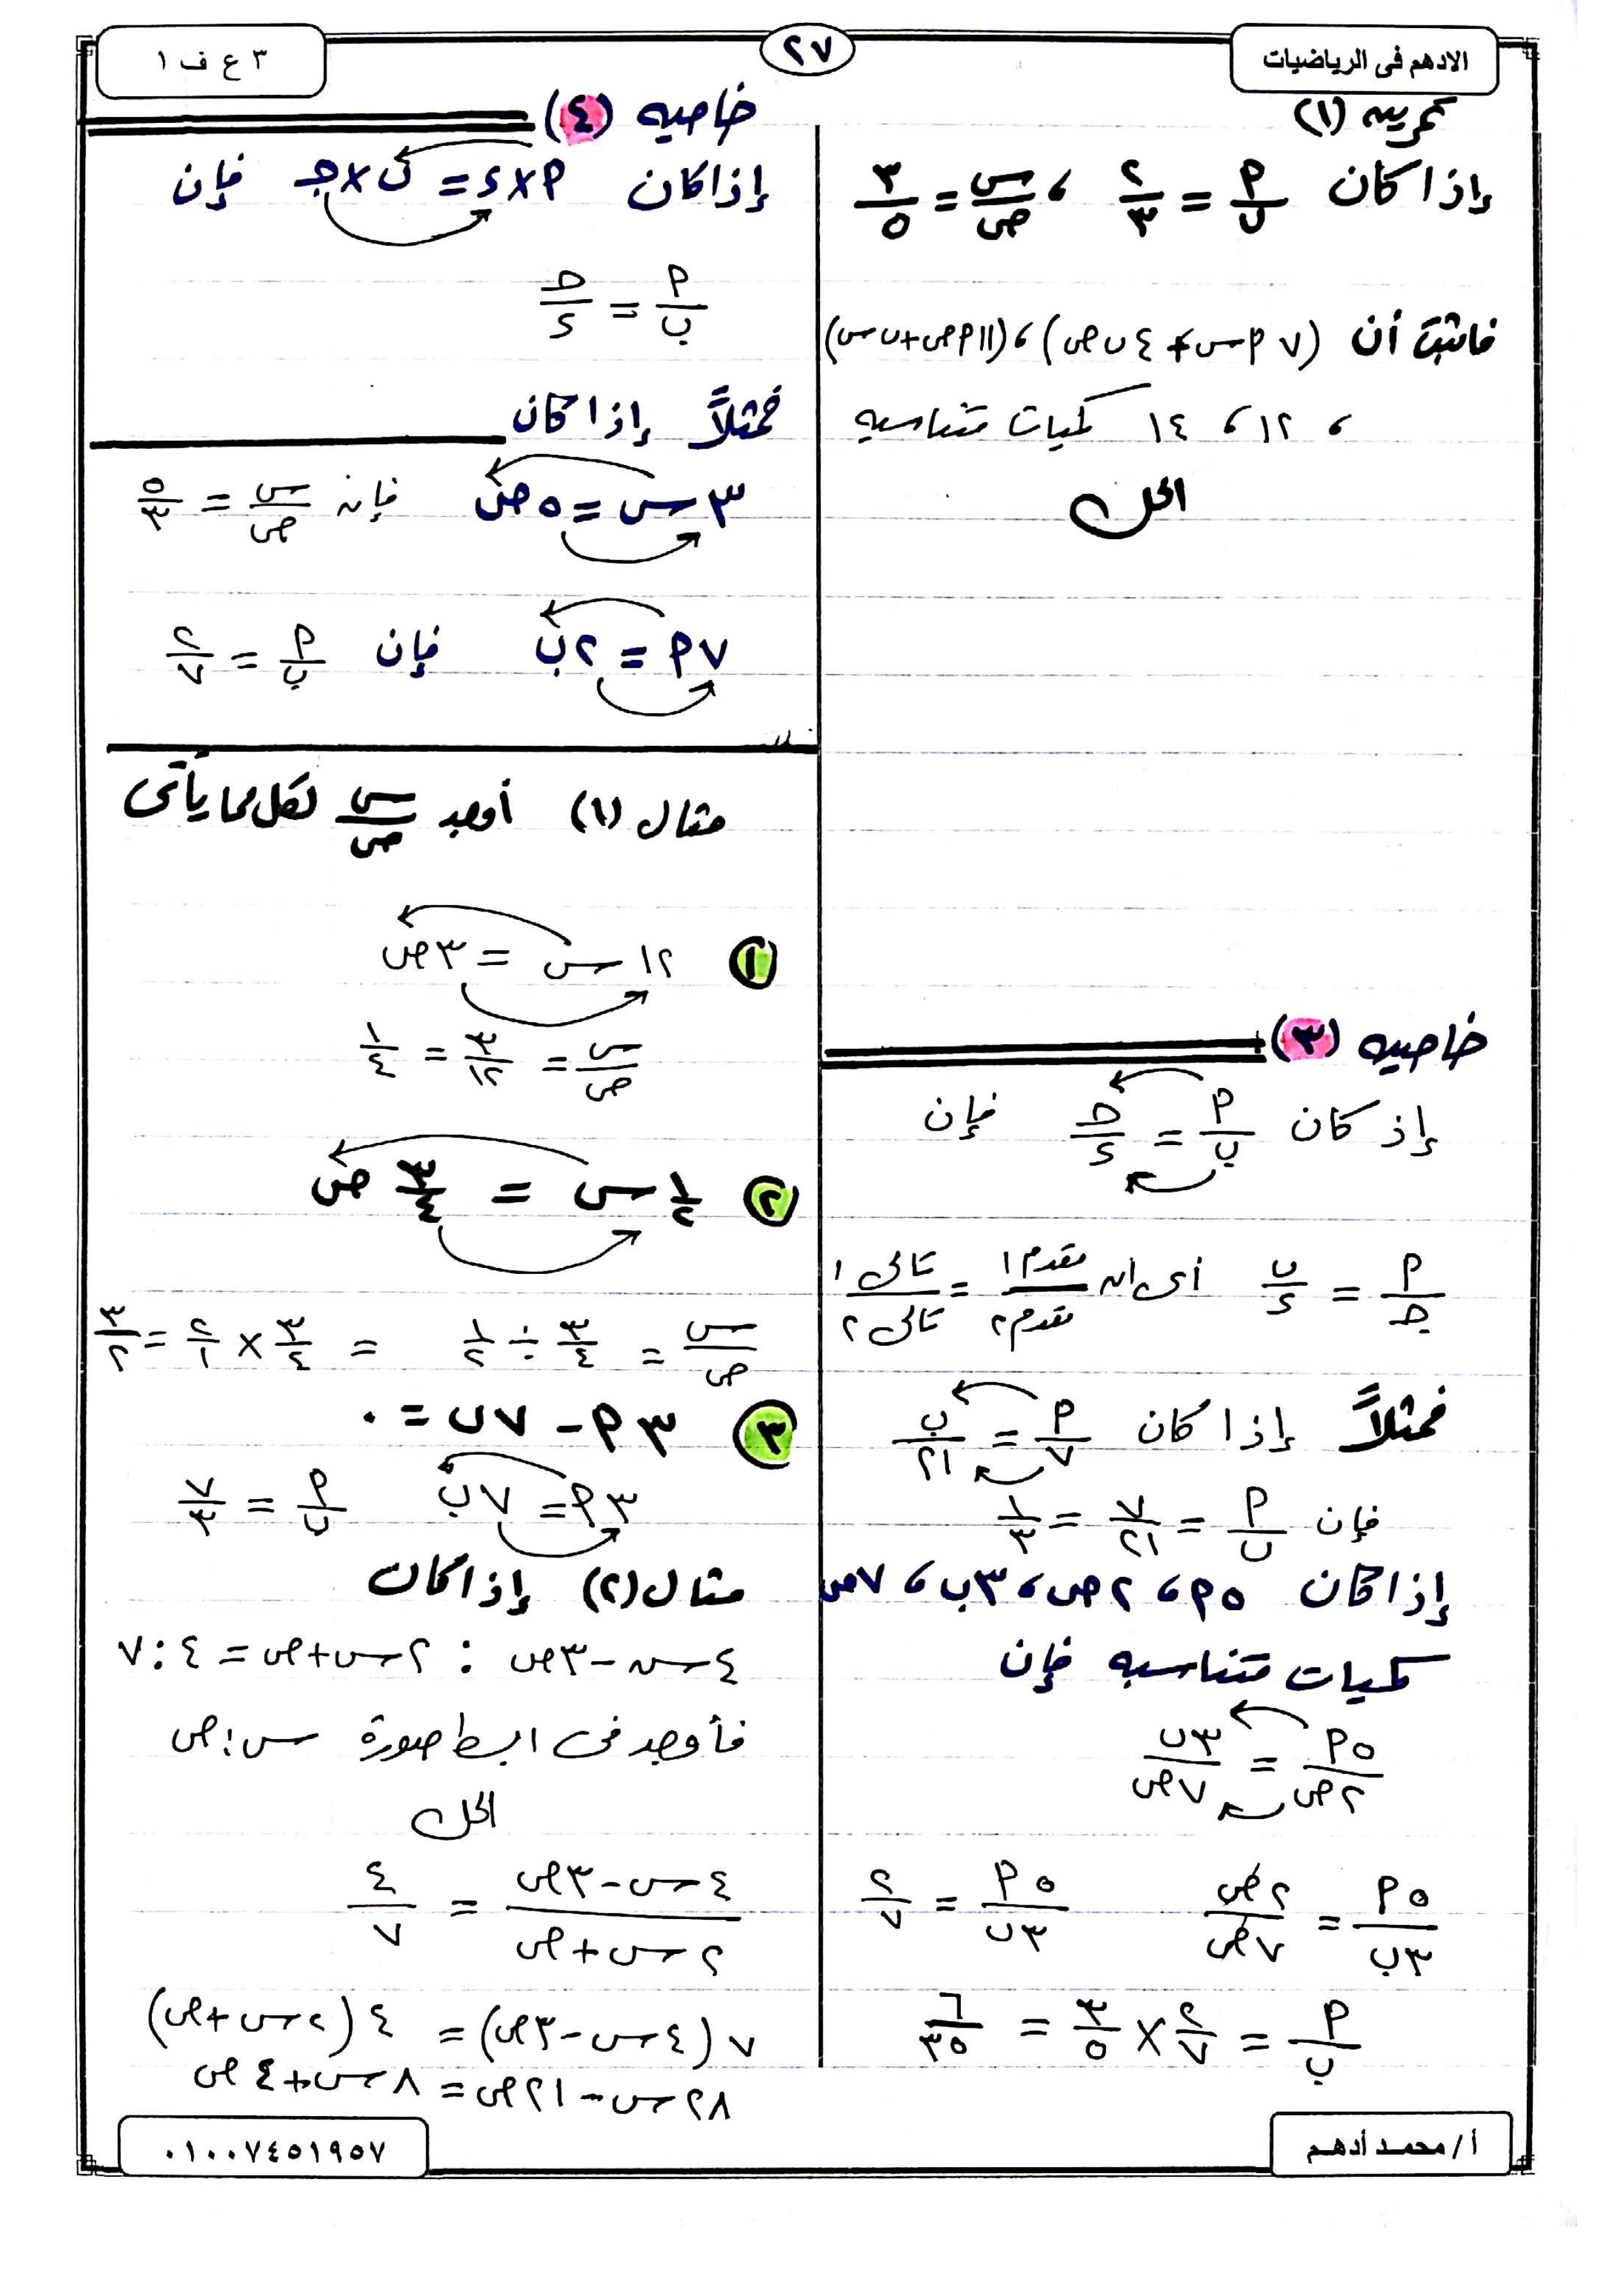 الادهم فى الرياضيات
٢٧
٣ ع ف ١
تمرين (١)
إذا كان أ/ب = ٢/٣ ، س/ص = ٣/٥
فاثبت أن (٧ أ س + ٤ ب ص) ، (١١ أ ص + ب س)
، ١٢ ، ١٤ كميات متناسبه
الحل
خاصيه (٣)
إذ كان أ/ب = ج/د فإن
أ/ج = ب/د أى ان مقدم ١/مقدم ٢ = تالى ١/تالى ٢
فمثلاً إذا كان أ/٧ = ب/٢١
فإن أ/ب = ٧/٢١ = ١/٣
إذا كان ٥أ ، ٢ص ، ٣ب ، ٧ص
كميات متناسبه فإن
٥أ/٢ص = ٣ب/٧ص
٥أ/٣ب = ٢ص/٧ص ٥أ/٣ب = ٢/٧
أ/ب = ٢/٧ × ٣/٥ = ٦/٣٥
خاصيه (٤)
إذا كان أ × د = ب × ج فإن
أ/ب = ج/د
فمثلاً إذا كان
٣ س = ٥ ص فإن س/ص = ٥/٣
٧أ = ٢ب فإن أ/ب = ٢/٧
مثال (١) أوجد س/ص لكل مما يأتى
١ ١٢ س = ٣ ص
س/ص = ٣/١٢ = ١/٤
٢ ١/٢ س = ٣/٤ ص
س/ص = ٣/٤ ÷ ١/٢ = ٣/٤ × ٢/١ = ٣/٢
٣ ٣أ - ٧ب = ٠
٣أ = ٧ب أ/ب = ٧/٣
مثال (٢) إذا كان
٤س - ٣ص : ٢س + ص = ٤ : ٧
فأوجد فى ابسط صورة س : ص
الحل
٤س - ٣ص/٢س + ص = ٤/٧
٧ (٤س - ٣ص) = ٤ (٢س + ص)
٢٨س - ٢١ص = ٨س + ٤ص
أ/ محمد أدهم
٠١٠٠٧٤٥١٩٥٧